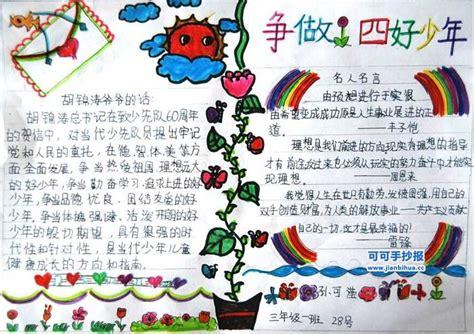 争做四好少年
胡锦涛爷爷的话:
胡锦涛总书记在致少先队60周年
的贺信中,对当代少先队员提出牢记
党和人民的重托,在德、智、体、美等方
面全面发展,争当热爱祖国、理想远大
的好少年,争当勤奋学习、追求上进的好
少年,争当品德优良、团结友爱的好
少年,争当体魄强健、活泼开朗的好少
年的殷切期望,具有很强的时
代性和针对性,是当代少年儿童健
康成长的方向和指南。
名人名言
希望变成成功原是人生事业展进的正
道。——丰子恺
理想是我们前进的方向现实有理想的指导
才有前途
现理想。——周恩来
我觉得人生在世只有勤劳,发愤图强,用自己的
双手创造财富,为人类的解放事业——共产主义贡献
自己的一切,这才是最幸福的!
——雷锋
可可手抄报
www.jianbihua.cc
三年级一班 28号
孙可